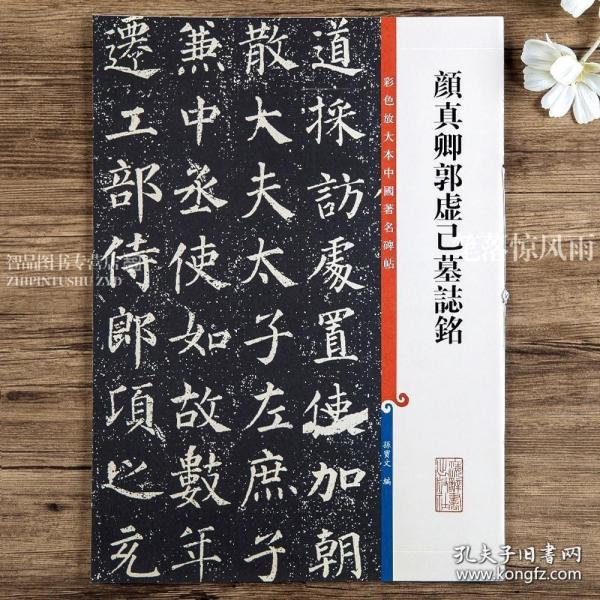 道採訪處置使加朝
散大夫太子左庶子
兼中丞使如故數年
遷工部侍郎項之充
彩色放大本中國著名碑帖
孫寶文 編
顏真卿郭虚己墓誌銘
笔落惊风雨
智品图书专营店
ZHIPINTUSHUZYD
孔夫子旧书网
www.kongfz.com